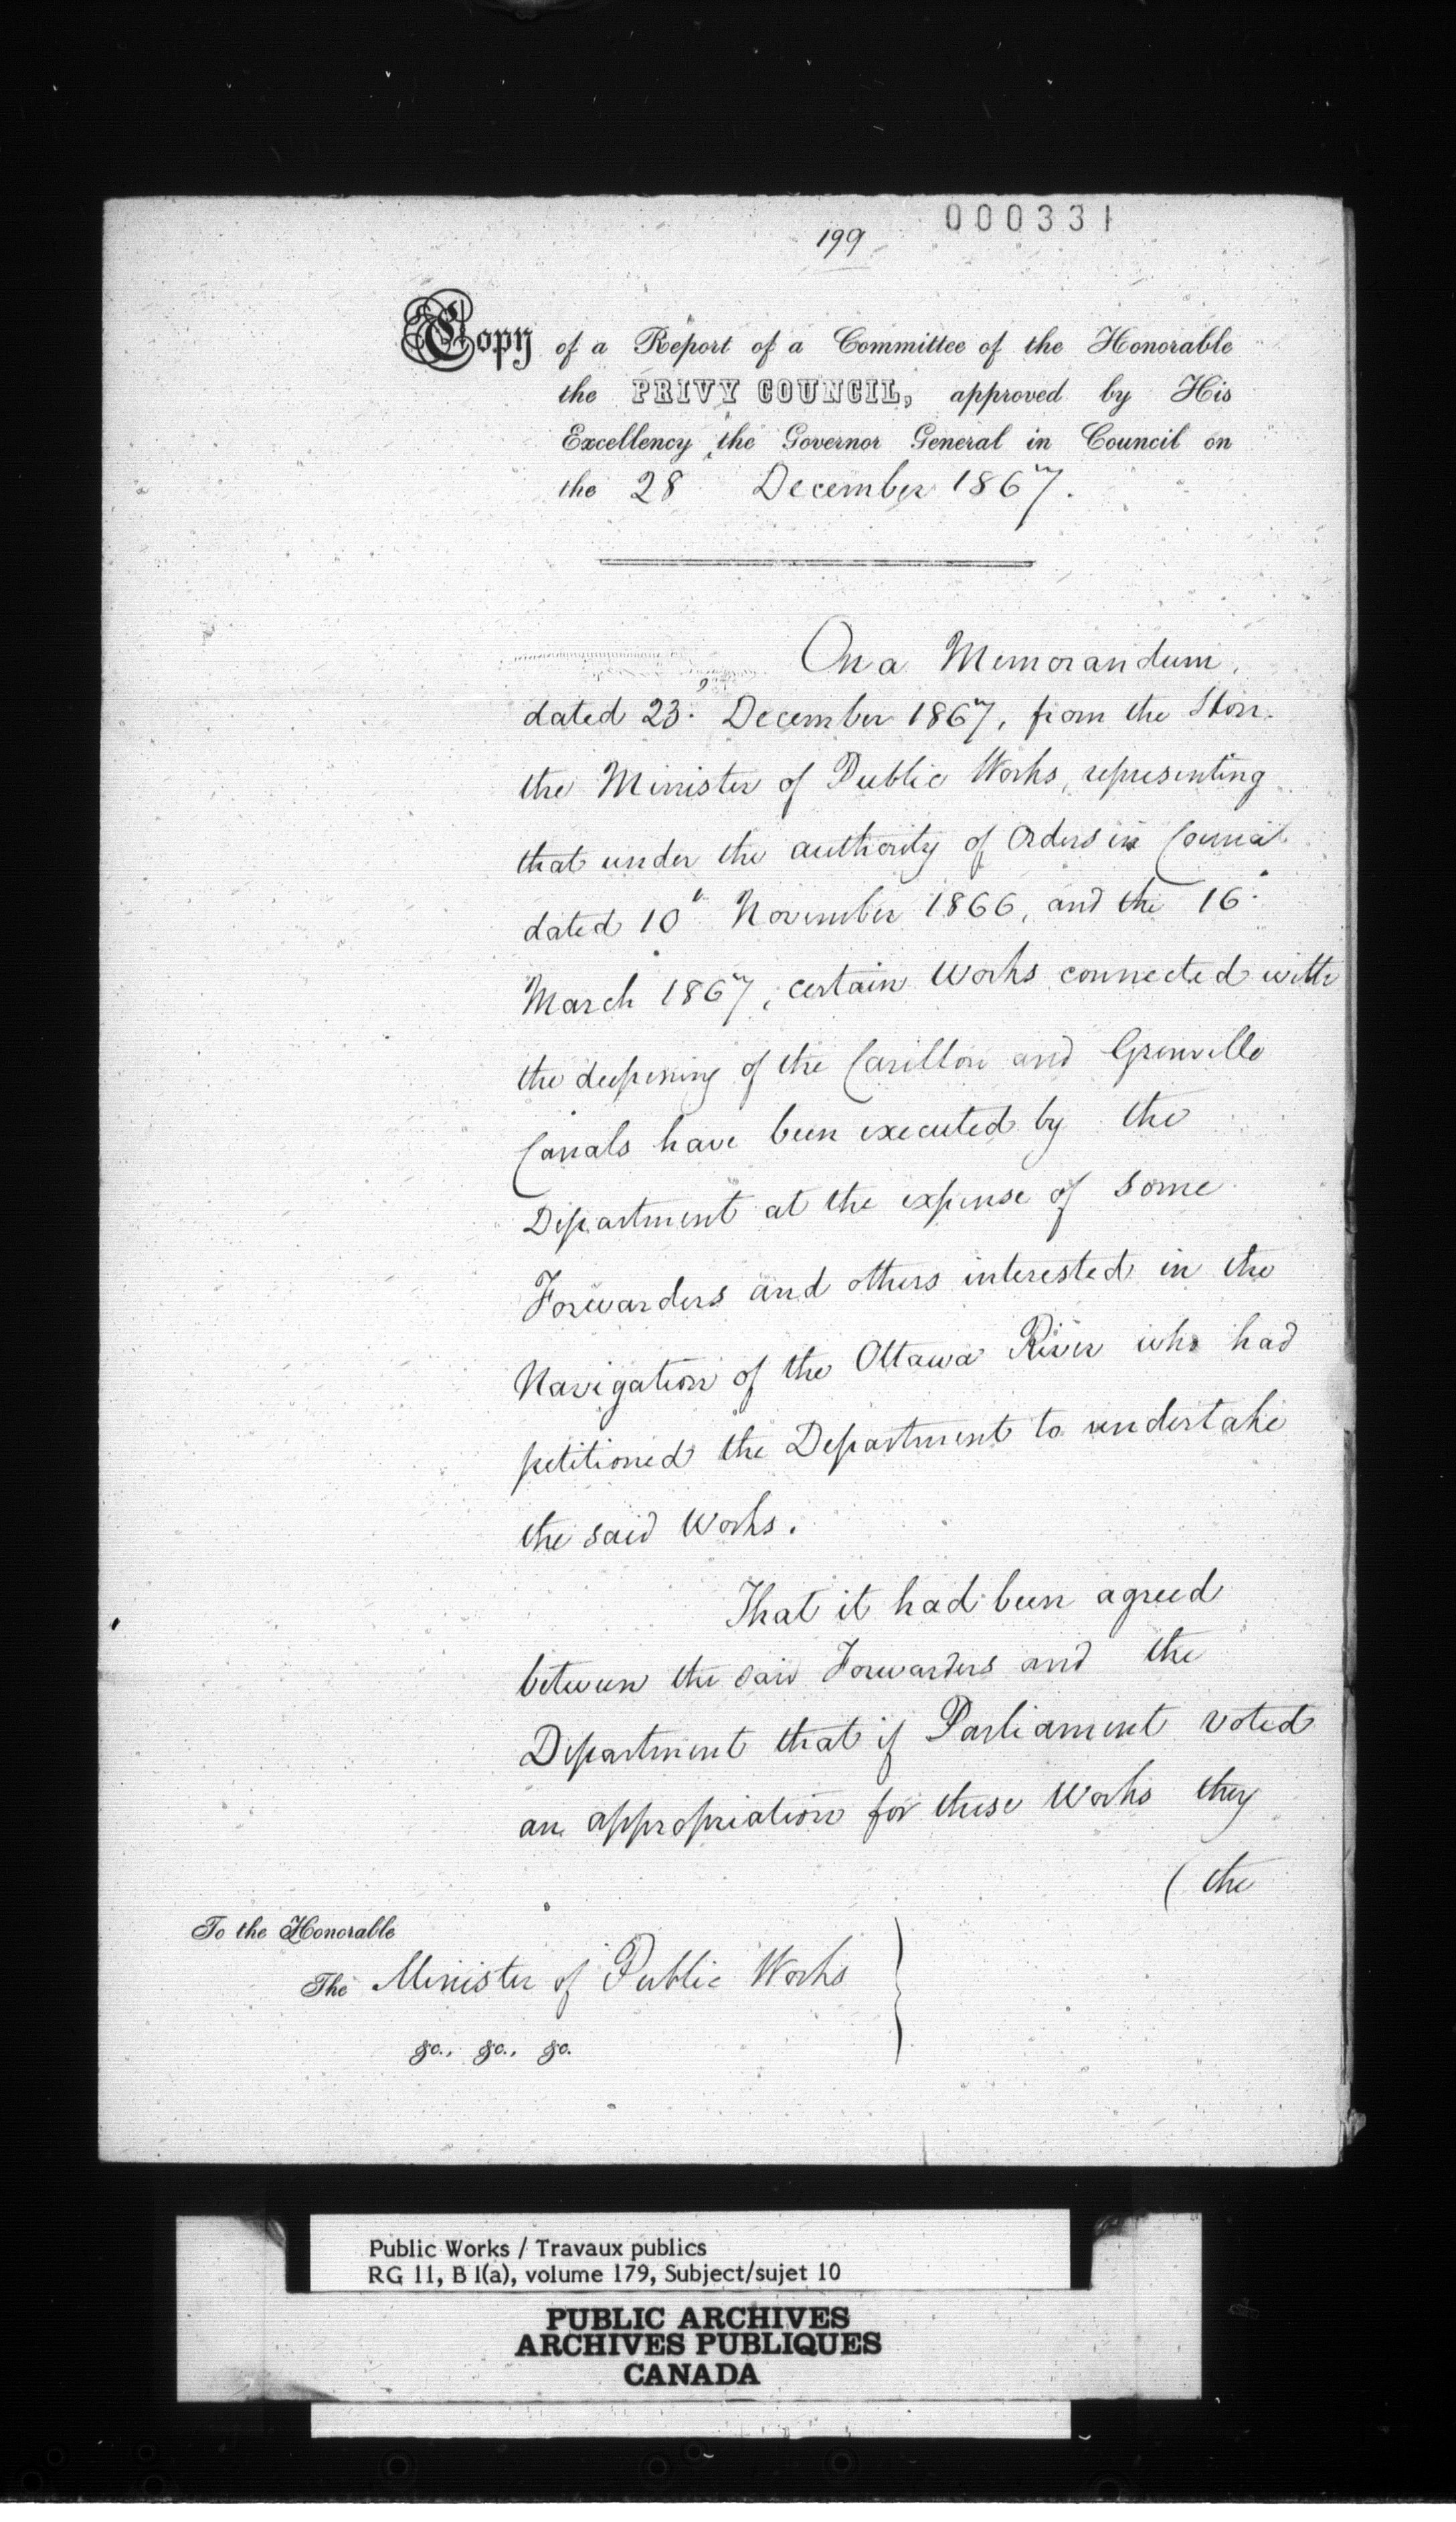 000331
199
Copy of a Report of a Committee of the Honorable
the PRIVY COUNCIL, approved by His
Excellency the Governor General in Council on
the 28 December 1867.
On a Memorandum,
dated 23d December 1867, from the Hon.
the Minister of Public Works, representing
that under the authority of Orders in Council
dated 10th November 1866, and the 16th
March 1867, certain Works connected with
the deepening of the Carillon and Grenville
Canals have been executed by the
Department at the expense of some
Forwarders and others interested in the
Navigation of the Ottawa River who had
petitioned the Department to undertake
the said Works.
That it had been agreed
between the said Forwarders and the
Department that if Parliament voted
an appropriation for these Works they
(the
To the Honorable
The Minister of Public Works
&c., &c., &c.
Public Works / Travaux publics
RG 11, B 1(a), volume 179, Subject/sujet 10
PUBLIC ARCHIVES
ARCHIVES PUBLIQUES
CANADA